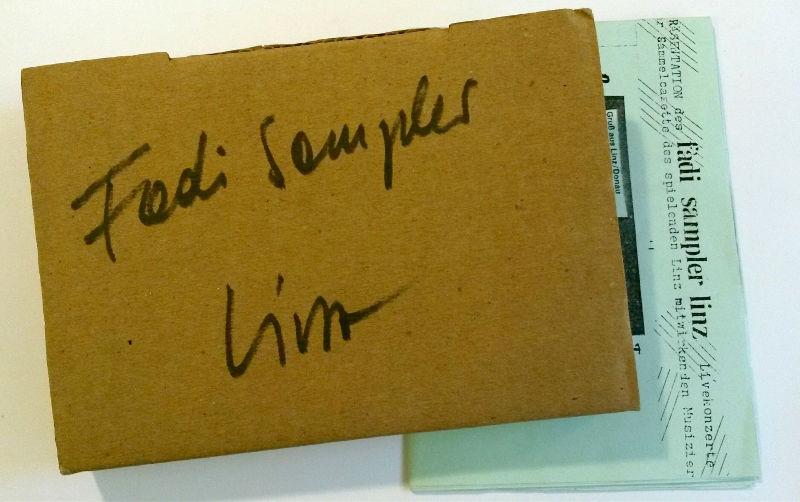 Fadi Sampler
Linz
Gruß aus Linz/Donau
RÄSENTATION des fadi sampler linz Livekonzerte
r Sammelcasette des spielenden Linz mitwirkenden Musizier